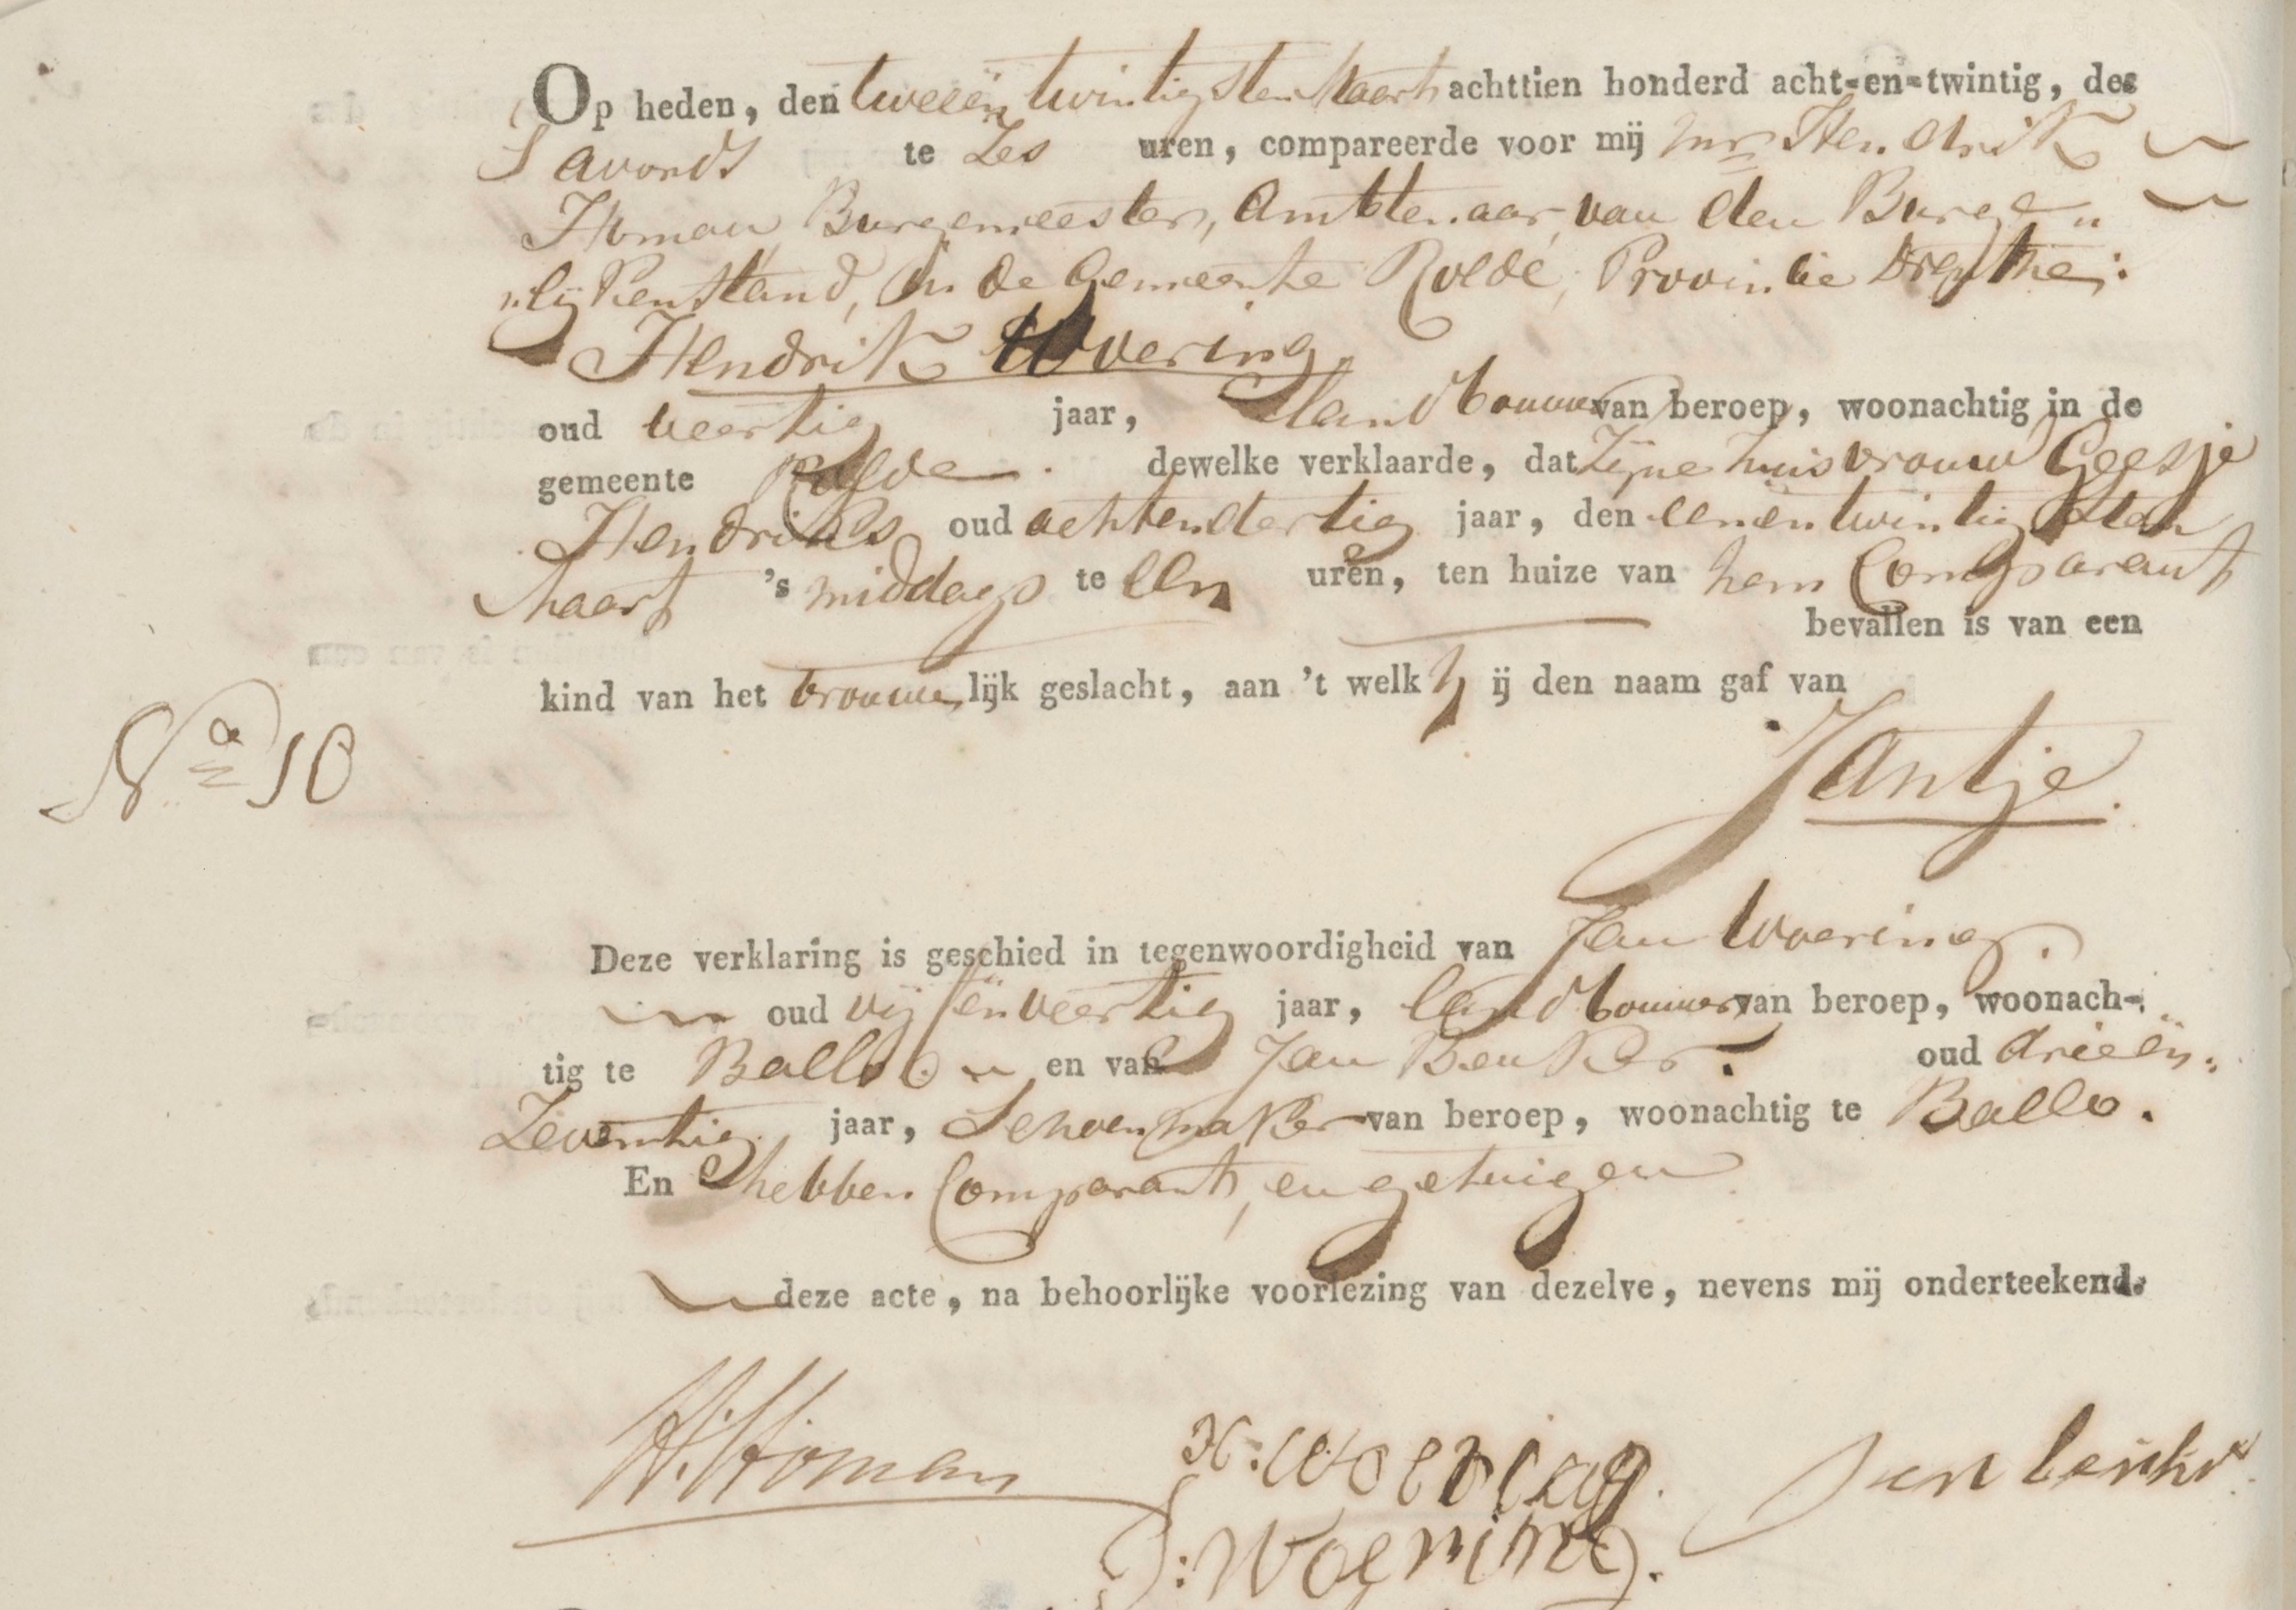 Op heden, den tweeën twintigsten Maart achttien honderd acht-en-twintig, des
S avonds te Zes uren, compareerde voor mij Mr Hendrik
Homan Burgemeester, Ambtenaar, van den Burge„
„lijkenstand, in de Gemeente Rolde, Provintie Drenthe;
Hendrik Woering
oud veertig jaar, landbouwer van beroep, woonachtig in de
gemeente Rolde. dewelke verklaarde, dat Zijne huisvrouw Geesje
Hendriks oud achtendertig jaar, den eenentwintigsten
Maart 's middags te een uren, ten huize van hem Comparant
bevallen is van een
kind van het vrouwelijk geslacht, aan 't welk hij den naam gaf van
Jantje.
No 10
Deze verklaring is geschied in tegenwoordigheid van Jan Woering.
oud vijfënveertig jaar, landbouwer van beroep, woonach-
tig te Ballo en van Jan Benker. oud drieën„
Zeventig jaar, Schoenmaker van beroep, woonachtig te Ballo.
En hebben Comparant, en getuigen
deze acte, na behoorlijke voorlezing van dezelve, nevens mij onderteekend.
H. Homan H: Woering Jan benker
J: Woering.